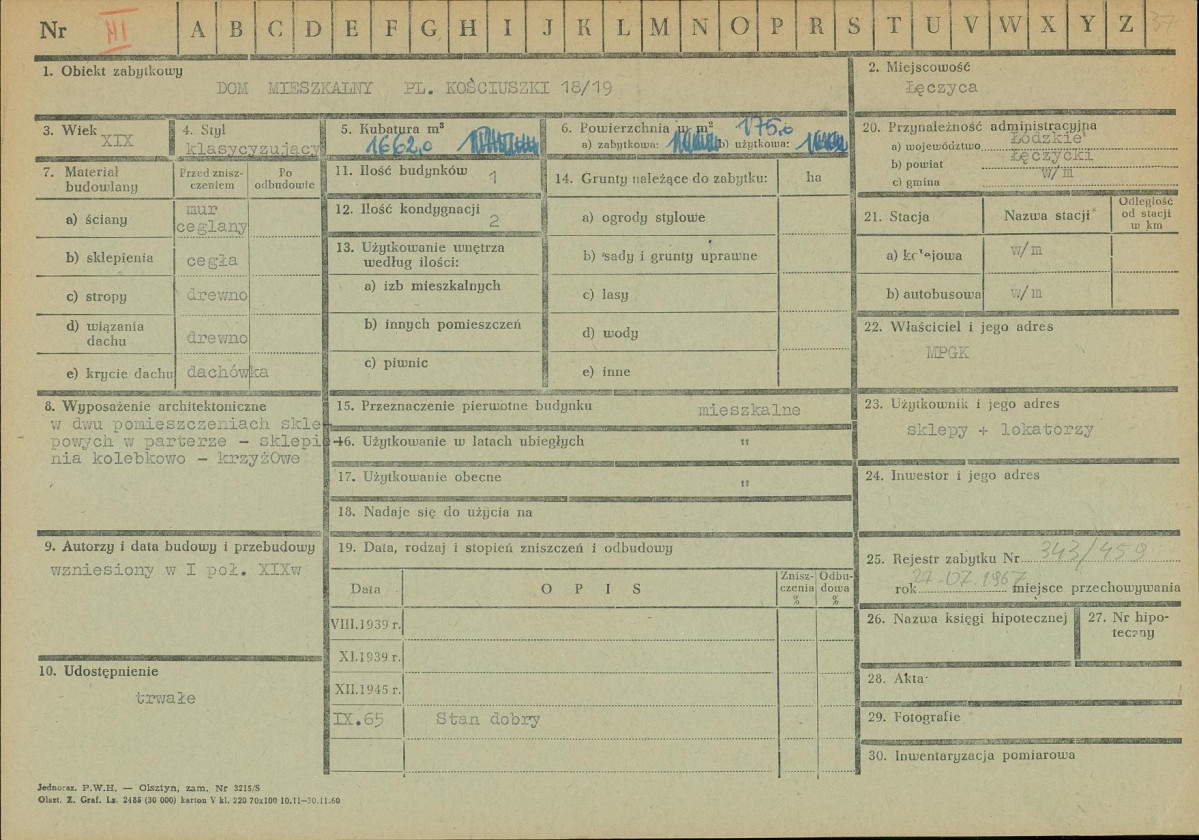 Nr III A B C D E F G H I J K L M N O P R S T U V W X Y Z 37
1. Obiekt zabytkowy
DOM MIESZKALNY PL. KOŚCIUSZKI 18/19
2. Miejscowość
Łęczyca
3. Wiek
XIX
4. Styl
klasycyzujący
5. Kubatura m³
1662,0
6. Powierzchnia w m² 175,0
a) zabytkowa: b) użytkowa:
20. Przynależność administracyjna
a) województwo Łódzkie
b) powiat Łęczycki
c) gmina w/m
7. Materiał budowlany
Przed zniszczeniem
Po odbudowie
a) ściany mur ceglany
b) sklepienia cegła
c) stropy drewno
d) wiązania dachu drewno
e) krycie dachu dachówka
11. Ilość budynków 1
12. Ilość kondygnacji 2
13. Użytkowanie wnętrza
według ilości:
a) izb mieszkalnych
b) innych pomieszczeń
c) piwnic
14. Grunty należące do zabytku: ha
a) ogrody stylowe
b) sady i grunty uprawne
c) lasy
d) wody
e) inne
21. Stacja Nazwa stacji Odległość od stacji w km
a) kolejowa w/m
b) autobusowa w/m
22. Właściciel i jego adres
MPGK
8. Wyposażenie architektoniczne
w dwu pomieszczeniach skle
powych w parterze - sklepi
nia kolebkowo - krzyżOwe
15. Przeznaczenie pierwotne budynku mieszkalne
16. Użytkowanie w latach ubiegłych "
17. Użytkowanie obecne "
18. Nadaje się do użycia na
23. Użytkownik i jego adres
sklepy + lokatorzy
24. Inwestor i jego adres
9. Autorzy i data budowy i przebudowy
wzniesiony w I poł. XIXw
19. Data, rodzaj i stopień zniszczeń i odbudowy
Data O P I S Zniszczenia % Odbudowa %
VIII.1939 r.
XI.1939 r.
XII.1945 r.
IX.65 Stan dobry
25. Rejestr zabytku Nr 343/459
rok 27.07.1967 miejsce przechowywania
26. Nazwa księgi hipotecznej
27. Nr hipoteczny
10. Udostępnienie
trwałe
28. Akta
29. Fotografie
30. Inwentaryzacja pomiarowa
Jednoraz. P.W.H. — Olsztyn, zam. Nr 3215/S
Olszt. Z. Graf. Lz. 2485 (30 000) karton V kl. 220 70x100 10.11—30.11.60